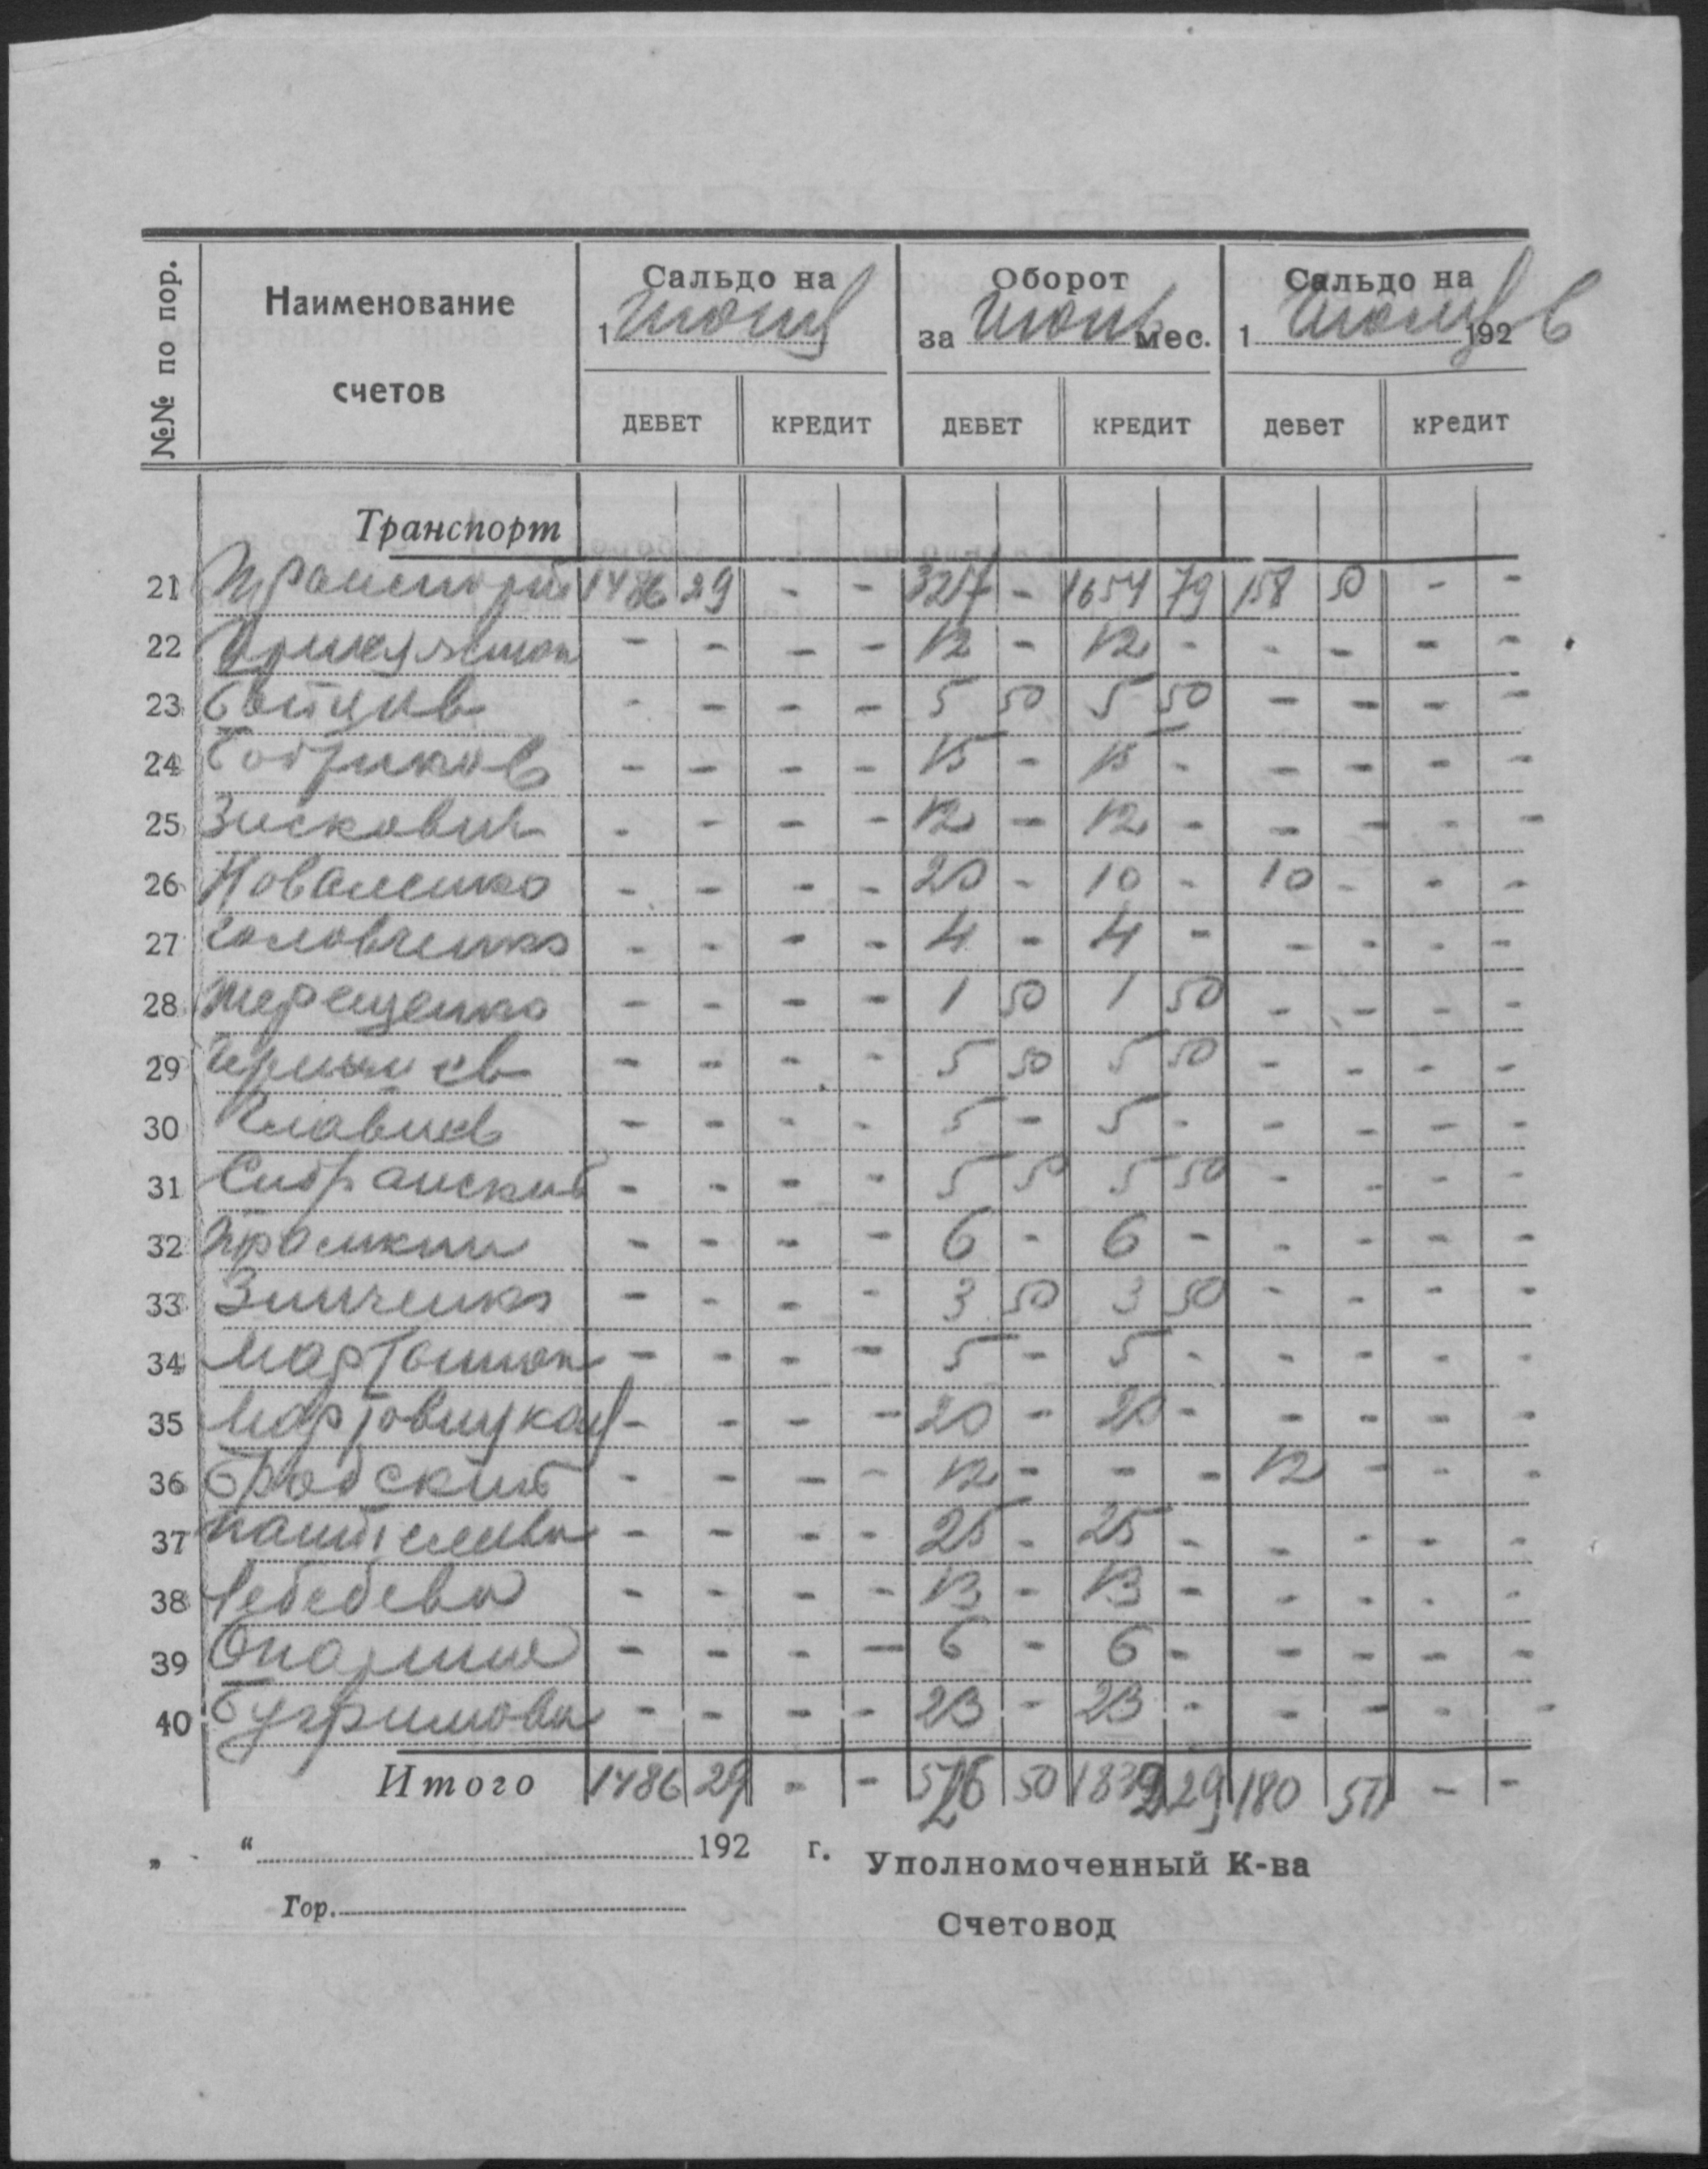 №№ по пор.
Наименование счетов
Сальдо на 1 Июня
Оборот за Июнь мес.
Сальдо на 1 Июля 1926
ДЕБЕТ КРЕДИТ ДЕБЕТ КРЕДИТ дебет кредит
Транспорт
21 Транспорт 1486 29 - - 327 - 1654 79 158 50 - -
22 - - - - 12 - 12 - - - - -
23 - - - - 5 50 5 50 - - - -
24 Бобриков - - - - 15 - 15 - - - - -
25 Зискович - - - - 12 - 12 - - - - -
26 Коваленко - - - - 20 - 10 - 10 - - -
27 Головченко - - - - 4 - 4 - - - - -
28 Терещенко - - - - 1 50 1 50 - - - -
29 - - - - 5 50 5 50 - - - -
30 - - - - 5 - 5 - - - - -
31 - - - - 5 50 5 50 - - - -
32 - - - - 6 - 6 - - - - -
33 Зинченко - - - - 3 50 3 50 - - - -
34 - - - - 5 - 5 - - - - -
35 Мартовицкая - - - - 20 - 20 - - - - -
36 Бродский - - - - 12 - - - 12 - - -
37 - - - - 25 - 25 - - - - -
38 Лебедева - - - - 13 - 13 - - - - -
39 - - - - 6 - 6 - - - - -
40 Бугримова - - - - 23 - 23 - - - - -
Итого 1486 29 - - 526 50 1832 29 180 50 - -
„ “ 192 г. Уполномоченный К-ва
Гор.
Счетовод